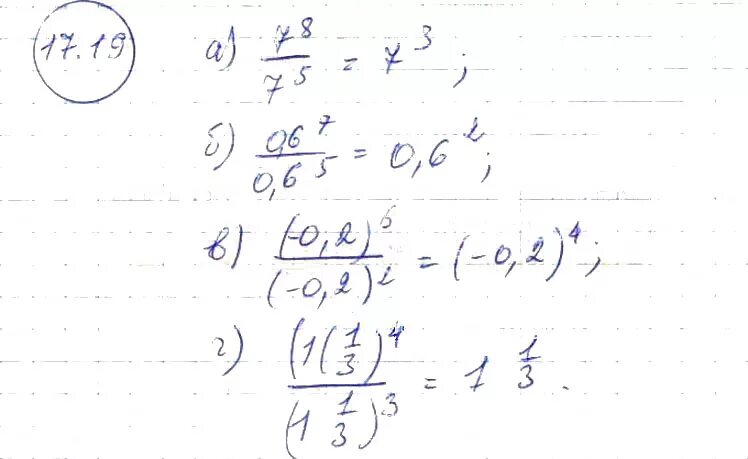 17.19
а) 7^8 / 7^5 = 7^3 ;
б) 0,6^7 / 0,6^5 = 0,6^2 ;
в) (-0,2)^6 / (-0,2)^2 = (-0,2)^4 ;
г) (1(1/3)^4 / (1 1/3)^3 = 1 1/3 .